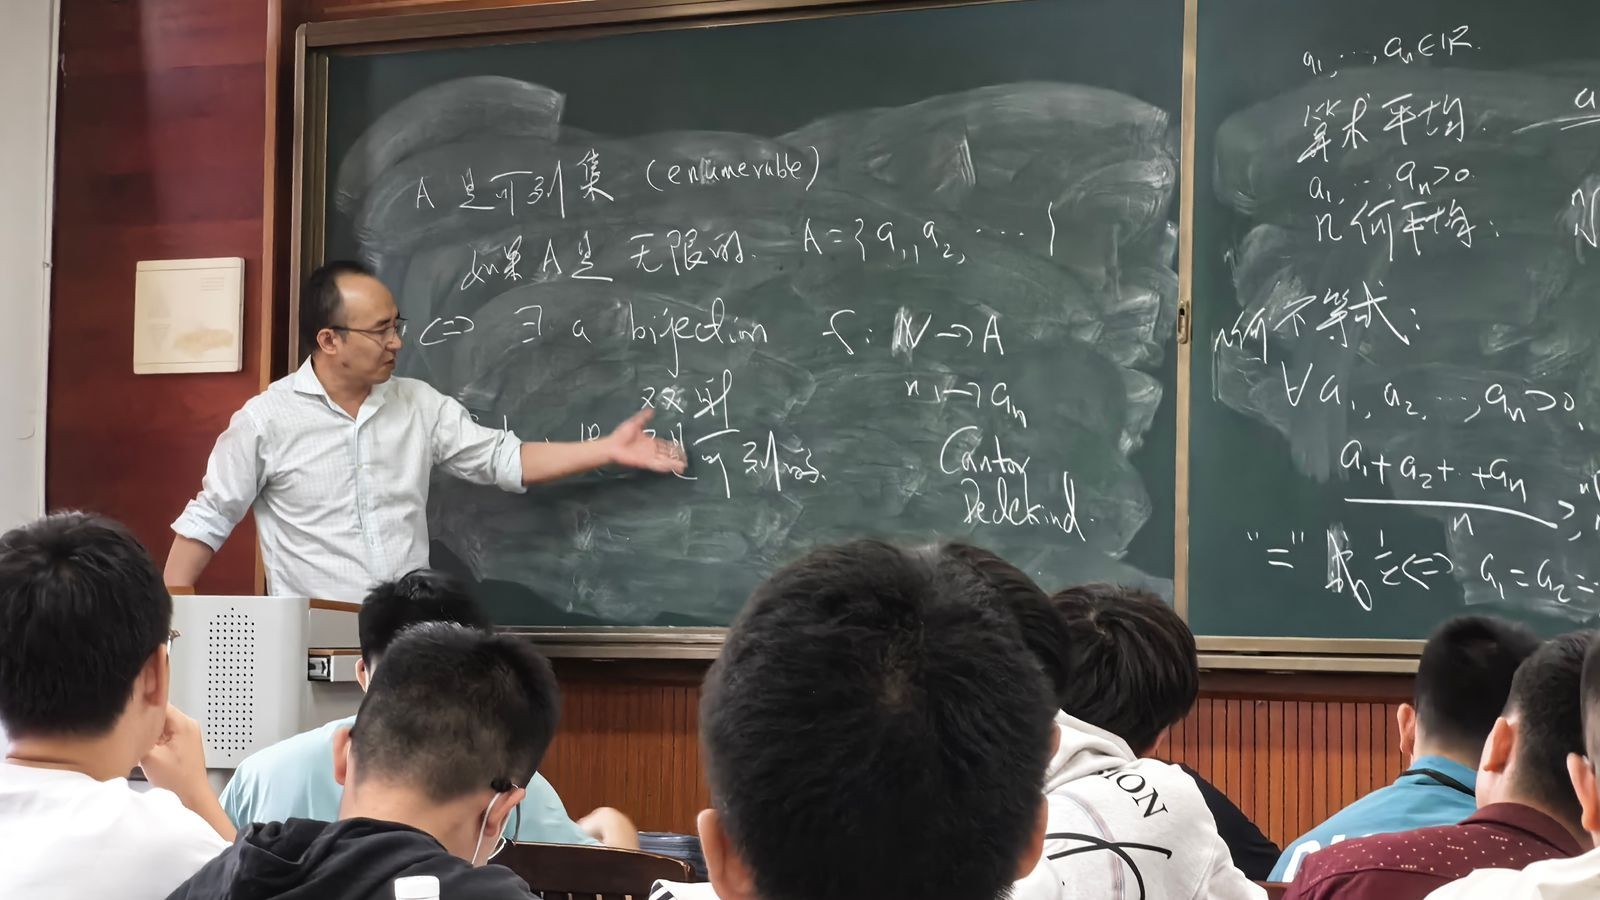 A 是可列集 (enumerable)
如果A是 无限的. A={a₁,a₂,⋯}
⟺ ∃ a bijection f: ℕ→A
双射
n↦aₙ
是可列的.
Cantor
Dedekind.
a₁,⋯,aₙ∈ℝ.
算术平均.
a₁,⋯,aₙ>0.
几何平均:
几何不等式:
∀a₁,a₂,⋯,aₙ>0,
a₁+a₂+⋯+aₙ
n
"=" 成立⟺ a₁=a₂=
ION